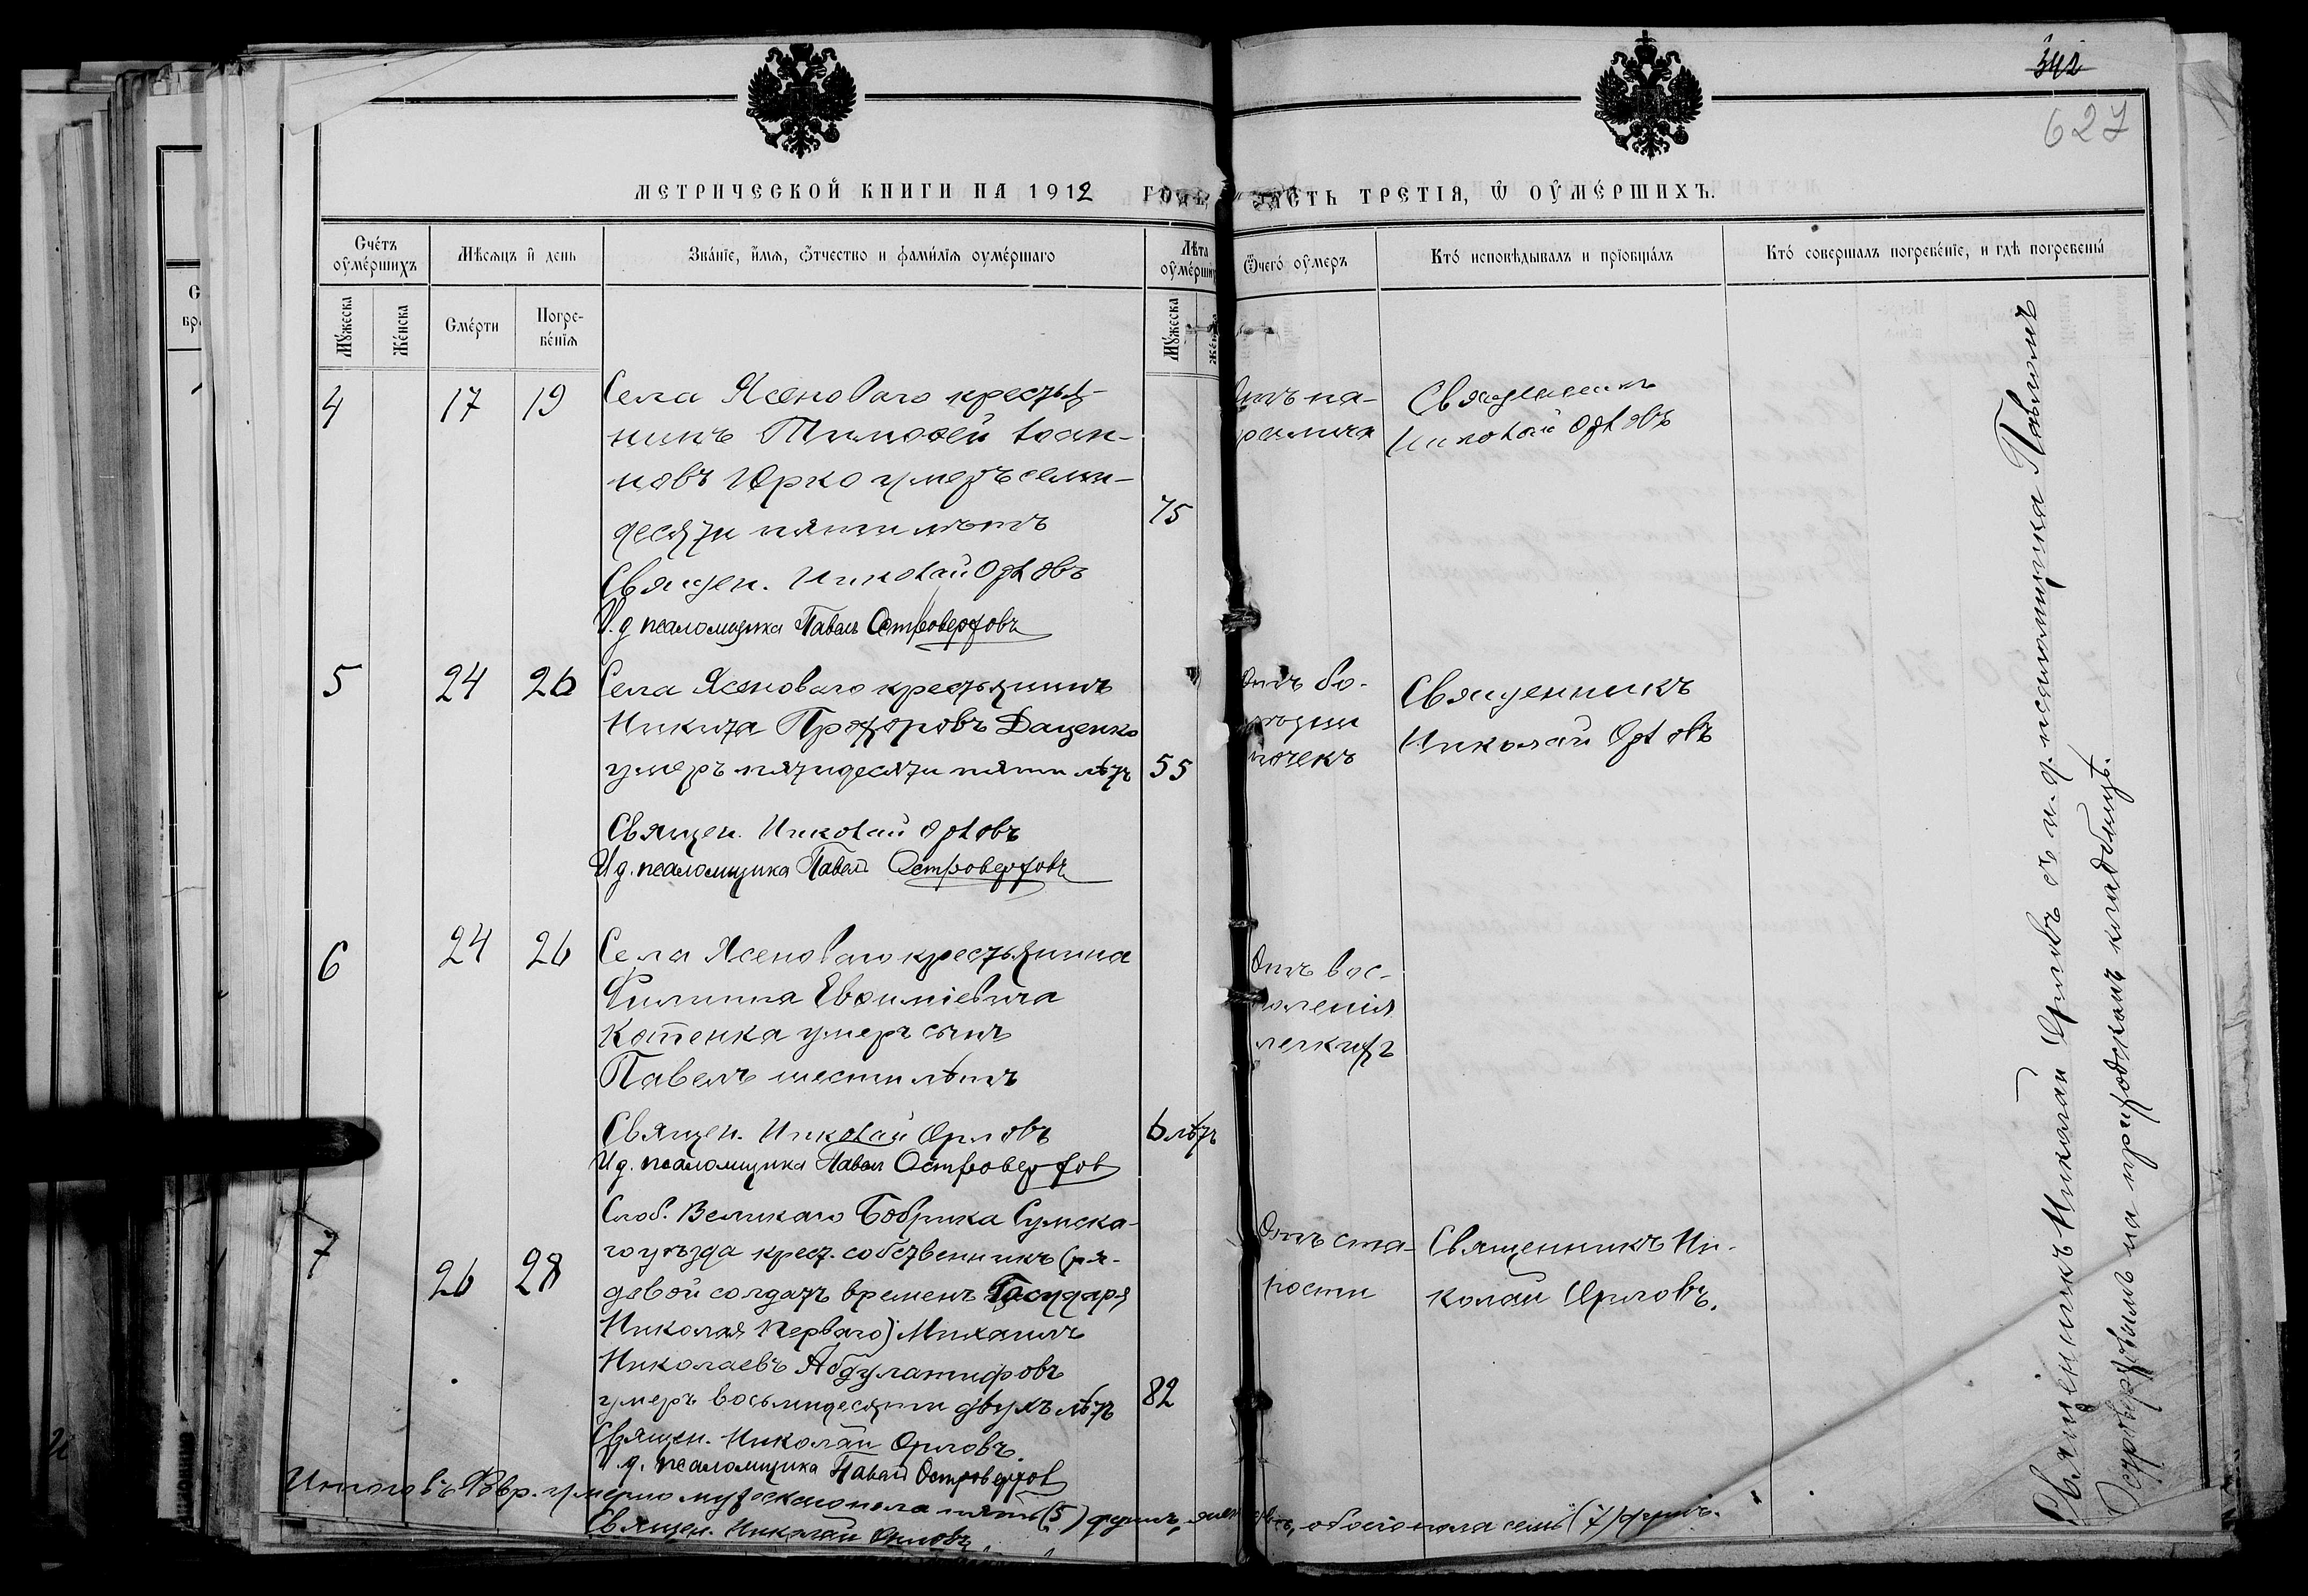 342
627
МЕТРИЧЕСКОЙ КНИГИ НА 1912 ГОДЪ, ЧАСТЬ ТРЕТІЯ, Ѡ ОУМЕРШИХЪ.
Счетъ оумершихъ
Мѣсяцъ и день
Званіе, имя, отчество и фамилія оумершаго
Лѣта оумершихъ
Отчего оумеръ
Кто исповѣдывалъ и пріобщалъ
Кто совершалъ погребеніе, и гдѣ погребены
Мужеска
Женска
Смерти
Погре-
бенія
Мужеска
4 17 19
Села Ясеноваго крестья-
нинъ Тимоѳей Іоан-
новъ Юрко умеръ семи-
десяти пяти лѣтъ
75
Священ. Николай Орловъ
И. д. псаломщика Павелъ Островерховъ
Отъ па-
ралича
Священникъ
Николай Орловъ
5 24 26
Села Ясеноваго крестьянинъ
Никита Прохоровъ Даценко
умеръ пятидесяти пяти лѣтъ
55
Священ. Николай Орловъ
И д. псаломщика Павелъ Островерховъ
Отъ бо-
лѣзни
почекъ
Священникъ
Николай Орловъ
6 24 26
Села Ясеноваго крестьянина
Филиппа Евѳиміевича
Котенка умеръ сынъ
Павелъ шести лѣтъ
Священ. Николай Орловъ
6 лѣтъ
И д. псаломщика Павел Островерхов
Отъ вос-
паленія
легкихъ
7 26 28
Слоб. Великаго Бобрика Сумска-
го уѣзда крест. собственникъ (ря-
довой солдатъ временъ Государя
Николая Перваго) Михаилъ
Николаевъ Абдулатифовъ
умеръ восьмидесяти двухъ лѣтъ
82
Священ. Николай Орловъ.
И. д. псаломщика Павелъ Островерхов
Отъ ста-
рости
Священникъ Ни-
колай Орловъ.
Итого въ Февр. умерло мужеска пола пять (5) душъ, обоего пола семь (7) душъ.
Священ. Николай Орловъ.
Священникъ Николай Орловъ съ и. д. псаломщика Павломъ
Островерховымъ на приходскомъ кладбищѣ.